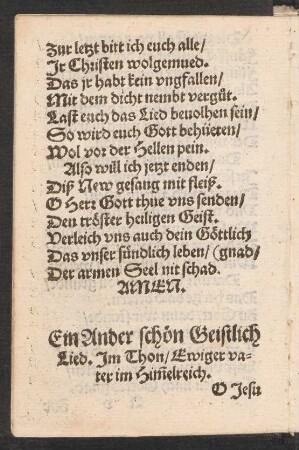 Zur letzt bitt ich euch alle/
Jr Christen wolgemued.
Das jr habt kein vngfallen/
Mit dem dicht nembt vergüt.
Last euch das Lied beuolhen sein/
So wird euch Gott behüeten/
Wol vor der Hellen pein.
Also will ich jetzt enden/
Diß New gesang mit fleiß.
O Herr Gott thue vns senden/
Den tröster heiligen Geist.
Verleich vns auch dein Göttlich
Das vnser sündlich leben/ (gnad/
Der armen Seel nit schad.
AMEN.
Ein Ander schön Geistlich
Lied. Im Thon/ Ewiger va-
ter im Him̃elreich.
O Jesu